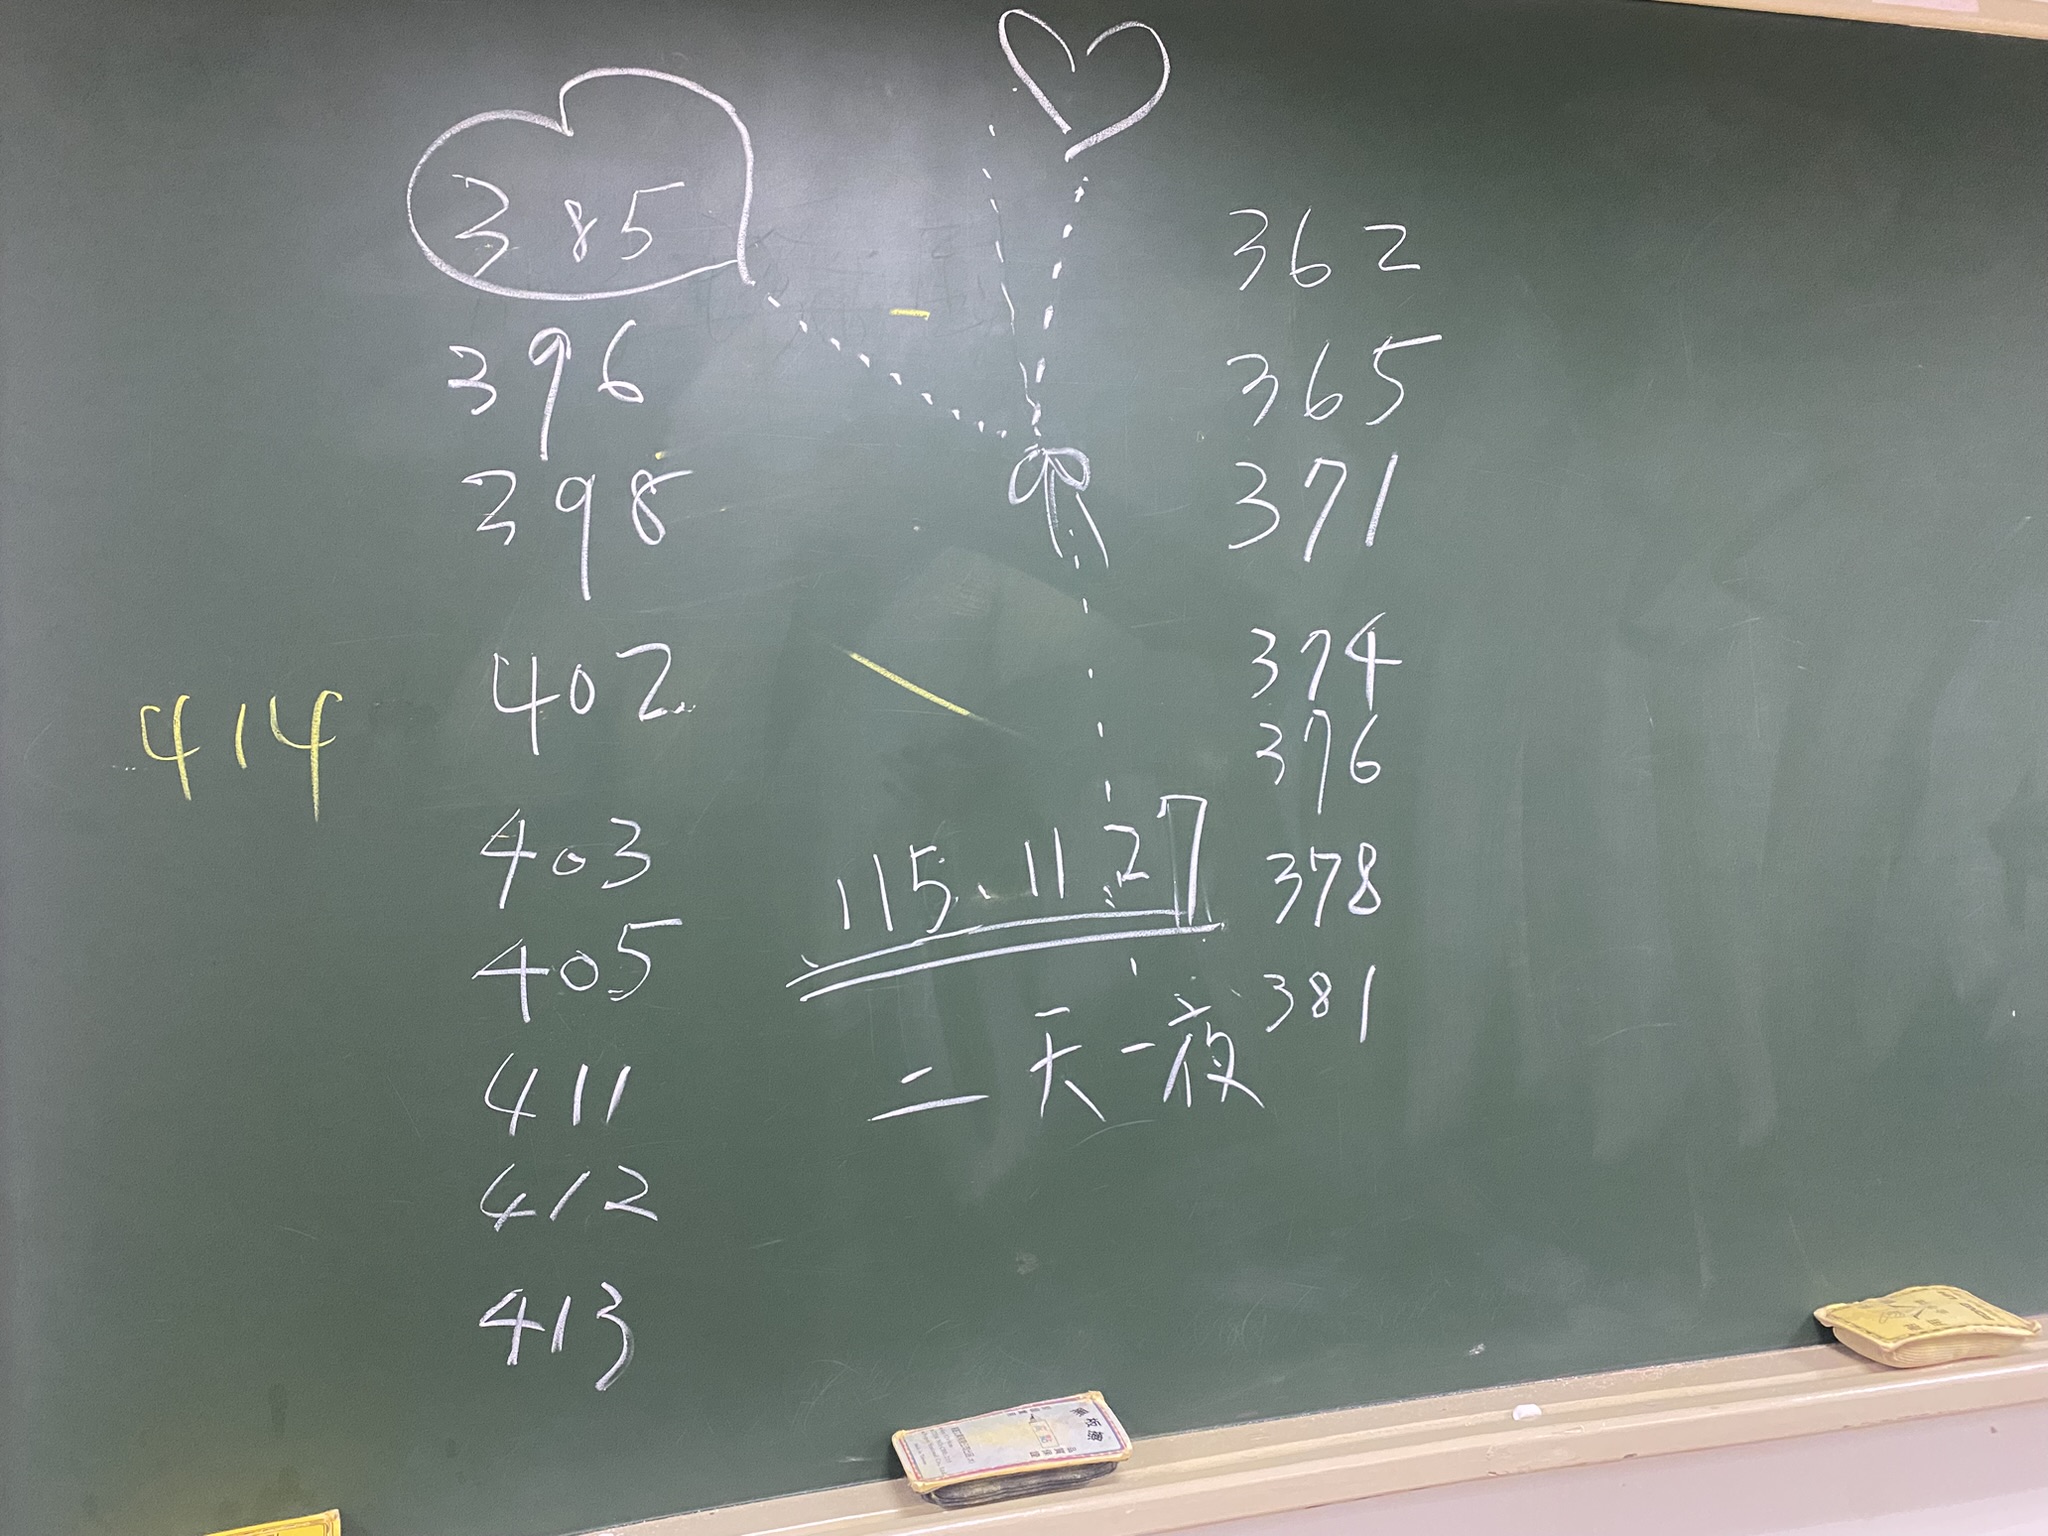 385
396
398
402
403
405
411
412
413
414
115.11.27
二天一夜
362
365
371
374
376
378
381